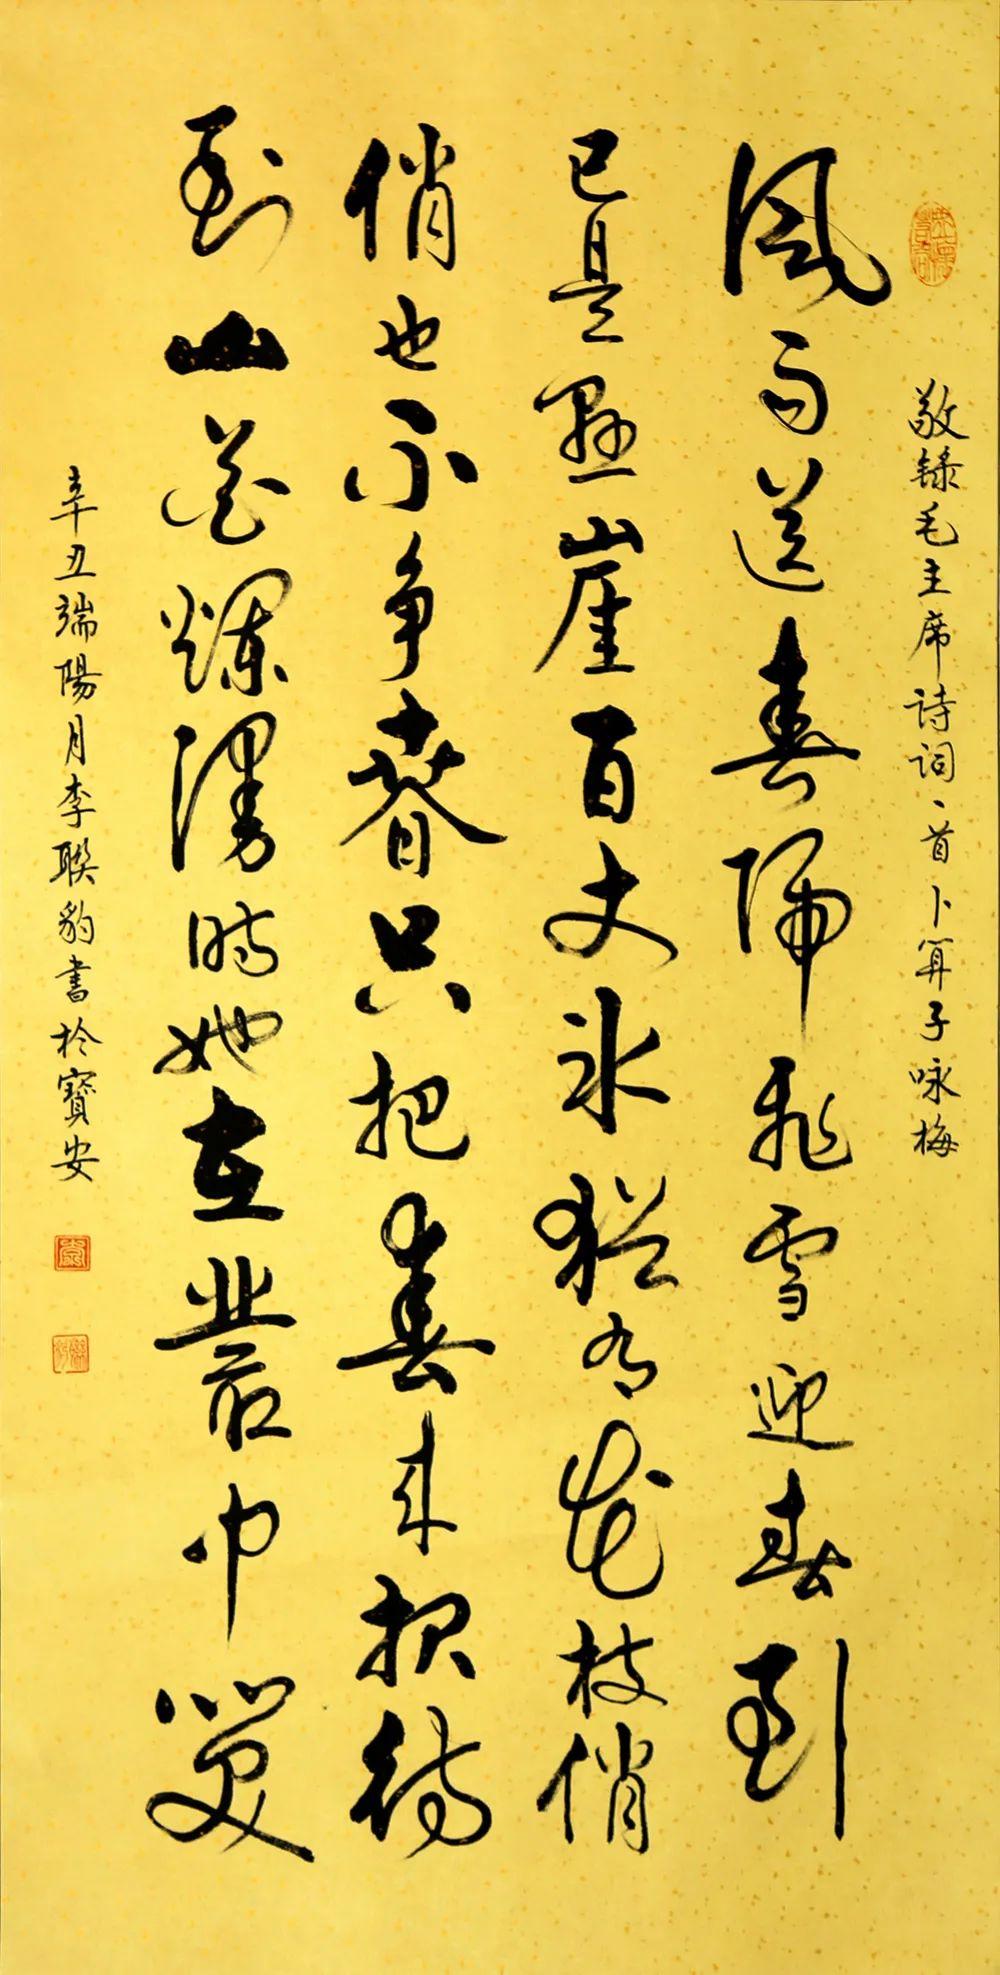 敬錄毛主席诗词一首卜算子咏梅
風雨送春歸飛雪迎春到
已是懸崖百丈冰猶有花枝俏
俏也不争春只把春來报待
到山花爛漫時她在叢中笑
辛丑端陽月李聯豹書於寶安